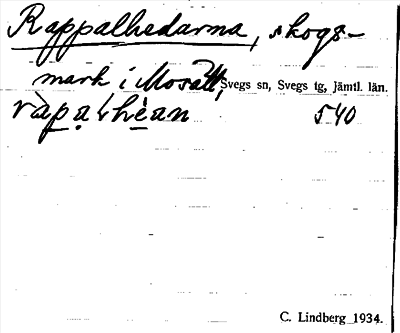 Rappalhedarna, skogs-
mark i Mosätt, Svegs sn, Svegs tg, jämtl. län.
ràpalhèan 540
C. Lindberg 1934.